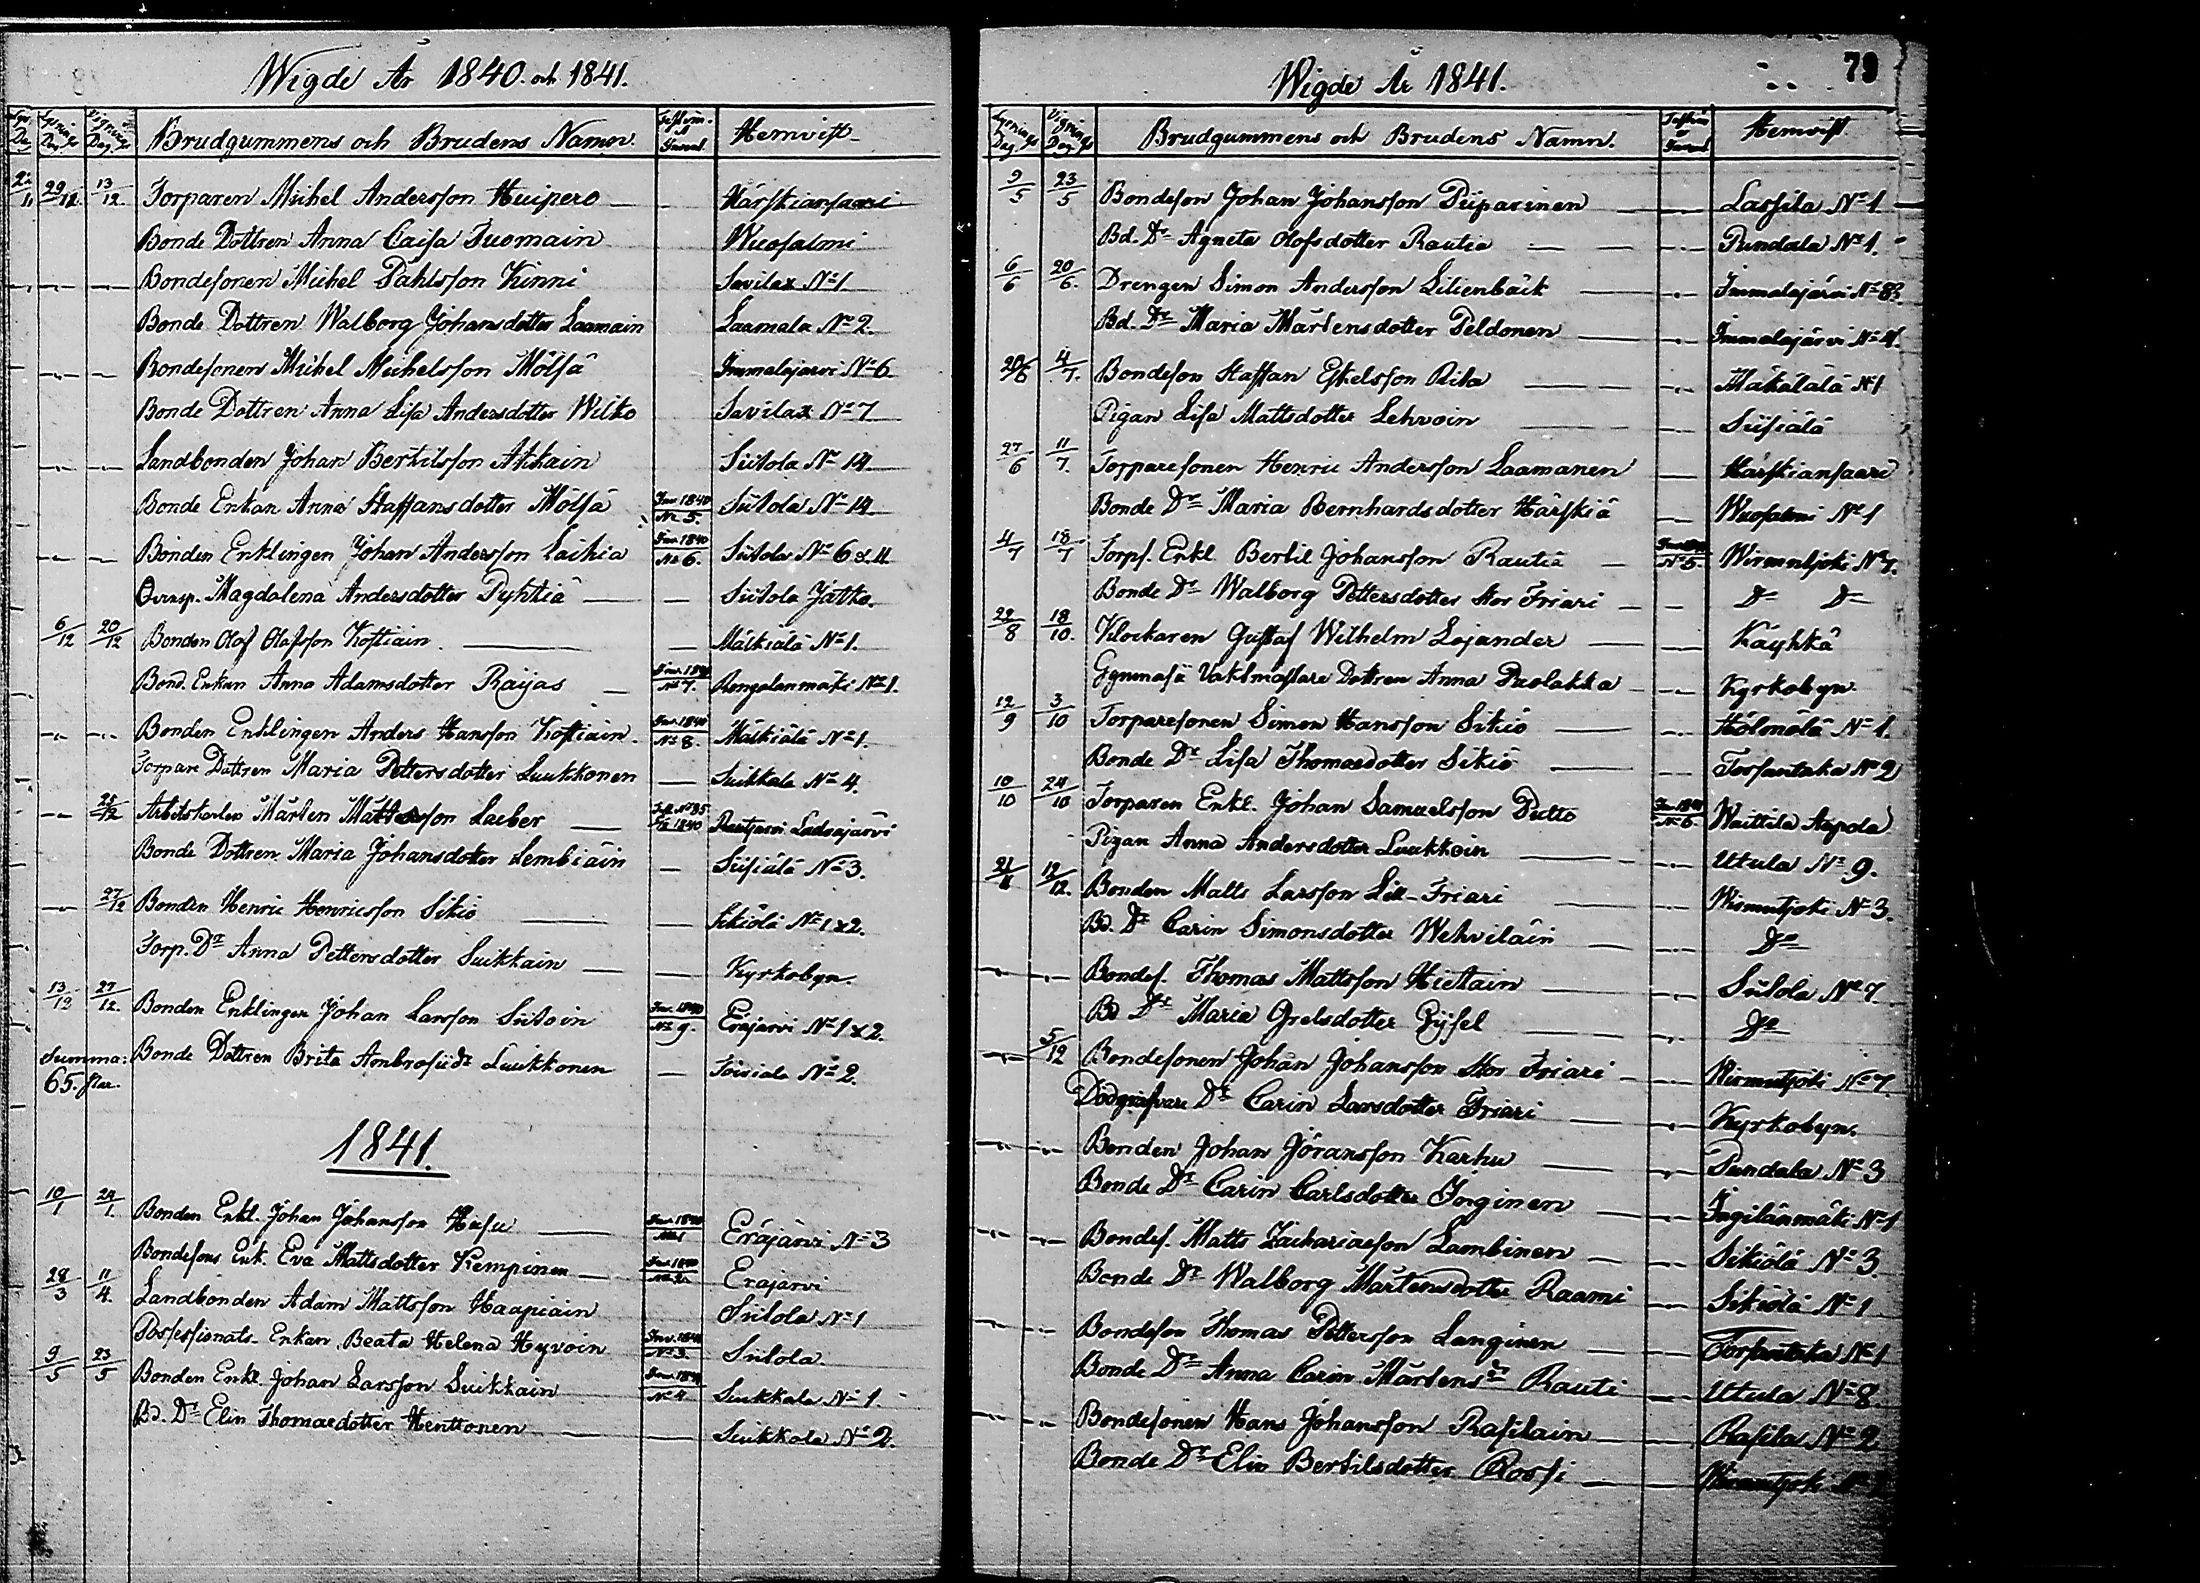 Wigde År 1840. och 1841.
Brudgummens och Brudens Namn. Hemvist
29/11 13/12 Torparen Michel Andersson Huipero Härskiansaari
Bonde Dottren Anna Caisa Tuomain Wuosalmi
Bondesonen Michel Påhlsson Kinni Savilax No 1
Bonde Dottren Walborg Johansdotter Laamain Laamala No 2.
Bondesonen Michel Michelsson Mölsä Immalajärvi No 6.
Bonde Dottren Anna Lisa Andersdotter Wilko Savilax No 7
Landbonden Johan Bertilsson Ahtiain Siitola No 14.
Bonde Enkan Anna Staffansdotter Mölsä Inv. 1840 No 5. Siitola No 14.
Bonden Enklingen Johan Andersson Laihia Inv. 1840 No 6. Siitola No 6 & 11
Qvinsp. Magdalena Andersdotter Pyhtiä Siitola Jätkö.
6/12 20/12 Bonden Olof Olofsson Kostiain Mälkiälä No 1.
Bond. Enkan Anna Adamsdotter Raijas Inv. 1840 No 7. Rongolanmäki No 1.
Bonden Enklingen Anders Hansson Kostiain Inv. 1840 No 8. Mälkiälä No 1.
Torpare Dottren Maria Pettersdotter Luukkonen Suikkala No 4.
Arbetskarlen Mårten Mattsson Laeber 1840 Rautjärvi
Bonde Dottren Maria Johansdotter Lembiäin Siisiälä No 3.
27/12 Bonden Henric Henricsson Sikiö Sikiölä No 1 & 2.
Torp. Dr Anna Pettersdotter Suikkain Kyrkobyn.
13/12 27/12. Bonden Enklingen Johan Larsson Siitoin Inv. 1840 No 9. Eräjärvi No 1 & 2.
Summa: Bonde Dottren Brita Ambrosiidr Luukkonen No 2.
65. Par.
1841.
10/1 24/1. Bonden Enkl. Johan Johansson Hiesu Eräjärvi No 3
Bondesons Enk. Eva Mattsdotter Kempinen Eräjärvi
28/3 11/4. Landbonden Adam Mattsson Haapiain Siitola No 1
Possessionats Enkan Beata Helena Hyvöin No 3. Siitola
9/5 23/5 Bonden Enkl. Johan Larsson Suikkain No 4 Suikkala No 1
Bd. Dr Elin Thomasdotter Henttonen Suikkala No 2.
79
Wigde År 1841.
Brudgummens och Brudens Namn. Hemvist
9/5 23/5 Bondeson Johan Johansson Piiparinen Lassila No 1
Bd. Dr Agneta Olofsdotter Rautia Pundala No 1.
6/6 20/6. Drengen Simon Andersson Lilienbäck Immalajärvi No
Bd. Dr Maria Mårtensdotter Peldonen Immalajärvi No 4.
20/6 4/7. Bondeson Staffan Eskelsson Rita No 1
Pigan Lisa Mattsdotter Lehvoin Siisiälä
27/6 11/7. Torparesonen Henric Andersson Laamanen Härskiansaari
Bonde Dr Maria Bernhardsdotter Härskiä Wuosalmi No 1
4/7 18/7 Torps. Enkl. Bertil Johansson Rautia No 5. Wirmutjoki No 7.
Bonde Dr Walborg Pettersdotter Stor Friari Do Do
22/8 18/10. Klockaren Gustaf Wilhelm Lojander Käyhkä
Gymnasii Vaktmästare Dottren Anna Puolakka Kyrkobyn.
12/9 3/10 Torparesonen Simon Hansson Sikiö Hölmölä No 1.
Bonde Dr Lisa Thomasdotter Sikiö Torsantaka No 2
10/10 24/10 Torparen Enkl. Johan Samuelsson Pullo No 6. Waittila Aapola
Pigan Anna Andersdotter Luukkoin Utula No 9.
21/11 12/12. Bonden Matts Larsson Lill-Friari Wirmutjoki No 3.
Bd. Dr Carin Simonsdotter Wehviläin Do
Bondes. Thomas Mattsson Hietain Siitola No 7
Bd Dr Maria Grelsdotter Pyssel Do
5/12 Bondesonen Johan Johansson Stor Friari Wirmutjoki No 7.
Dödgräfvare Dr Carin Larsdotter Friari Kyrkobyn.
Bonden Johan Jöransson Karhu Pundala No 3
Bonde Dr Carin Carlsdotter Inginen Ingilänmäki No 1
Bondes. Matts Zachariaesson Lambinen Sikiölä No 3.
Bonde Dr Walborg Mårtensdotter Raami Sikiölä No 1
Bondeson Thomas Pettersson Langinen Torsantaka No 1
Bonde Dr Anna Carin Mårtensdr Rauti Utula No 8.
Bondesonen Hans Johansson Rasilain Rasila No 2
Bonde Dr Elin Bertilsdotter Rossi Wirmutjoki